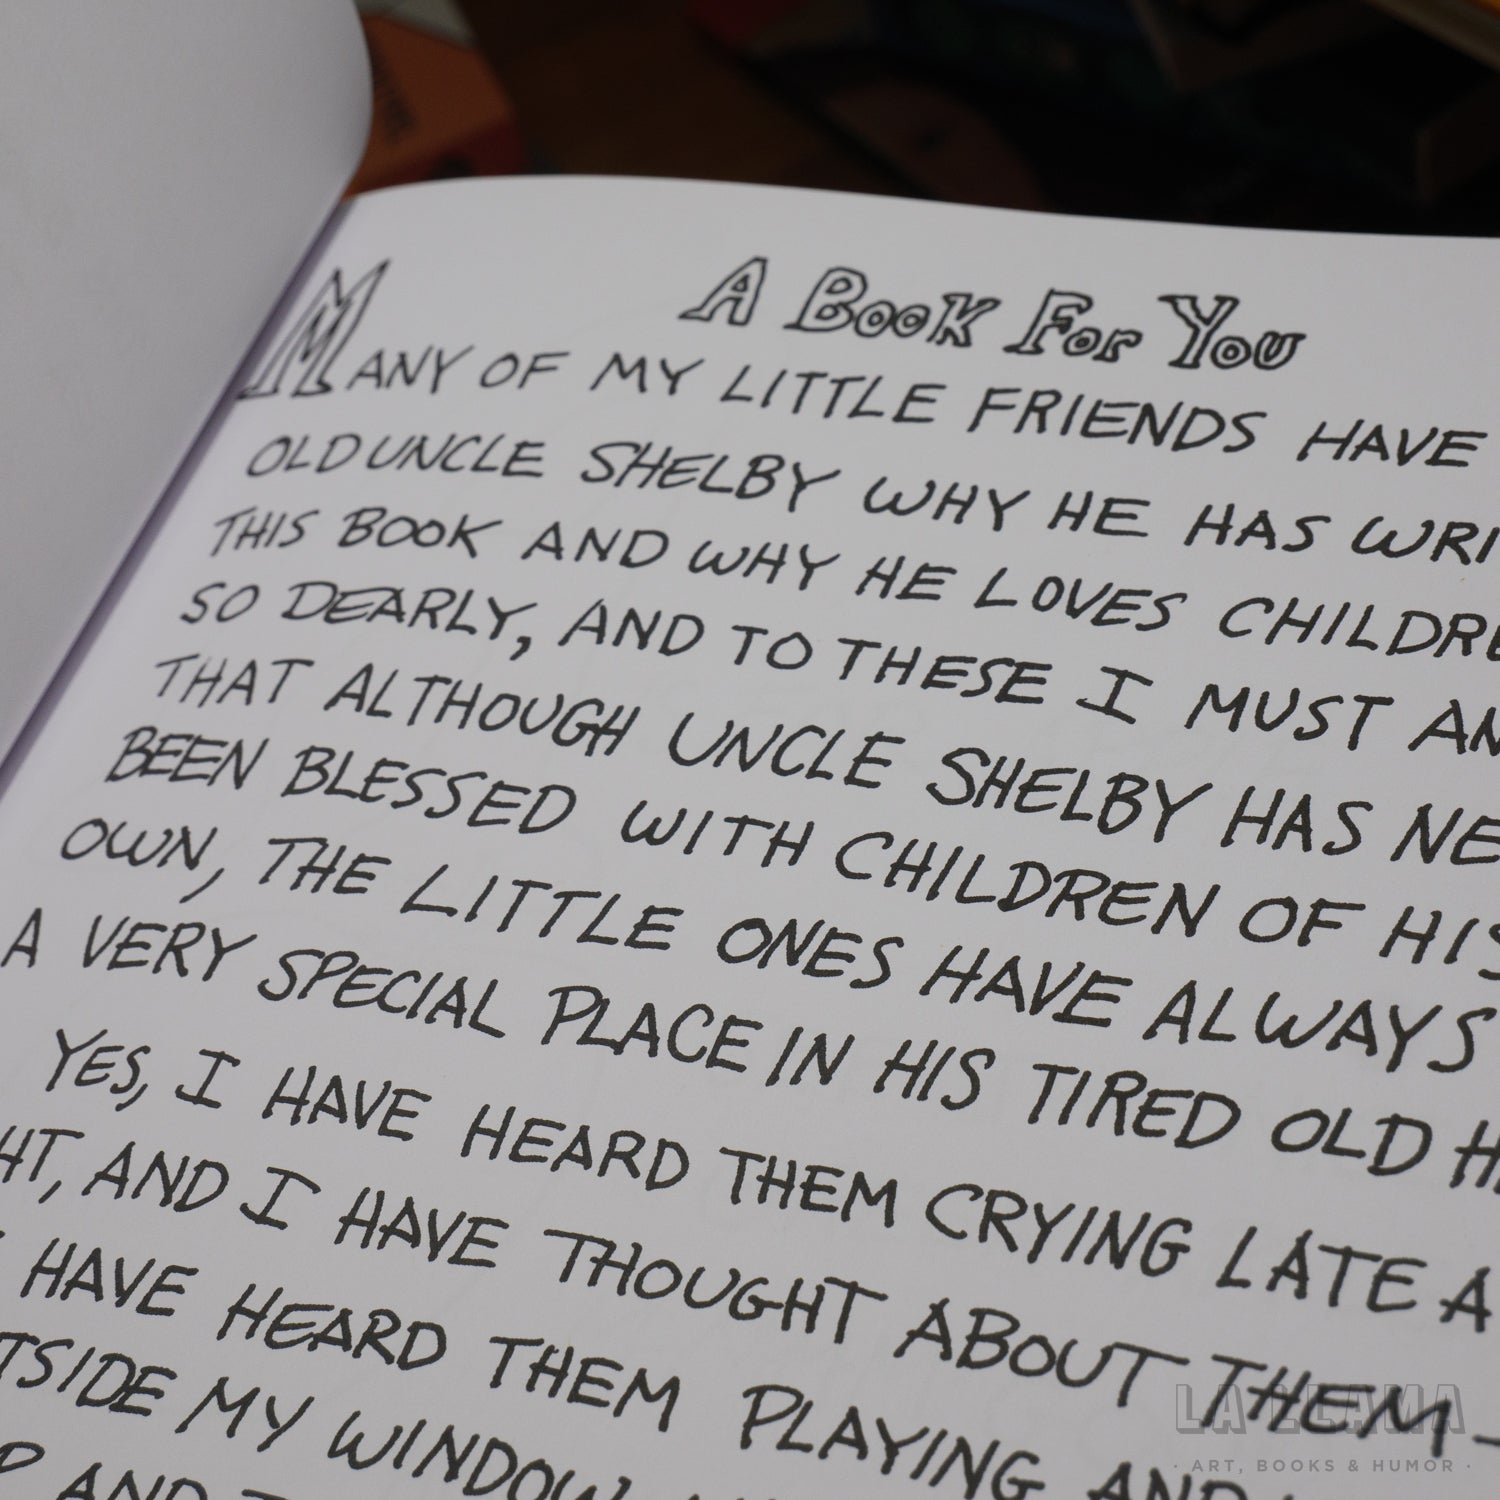 A BOOK FOR YOU
MANY OF MY LITTLE FRIENDS HAVE
OLD UNCLE SHELBY WHY HE HAS WRI
THIS BOOK AND WHY HE LOVES CHILDRE
SO DEARLY, AND TO THESE I MUST AN
THAT ALTHOUGH UNCLE SHELBY HAS NE
BEEN BLESSED WITH CHILDREN OF HIS
OWN, THE LITTLE ONES HAVE ALWAYS
A VERY SPECIAL PLACE IN HIS TIRED OLD H
YES, I HAVE HEARD THEM CRYING LATE A
HT, AND I HAVE THOUGHT ABOUT THEM-
HAVE HEARD THEM PLAYING AND
TSIDE MY WINDOW
P AND
LA LLAMA
· ART, BOOKS & HUMOR ·